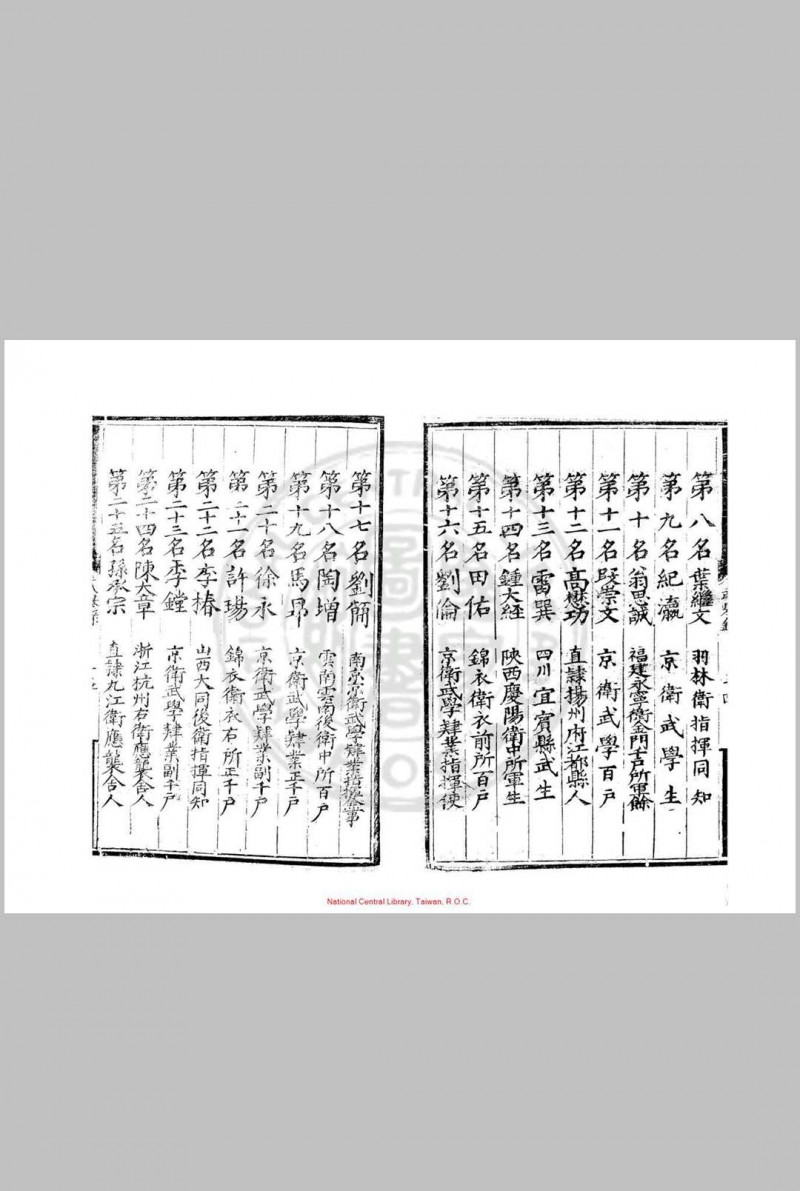 第八名葉繼文 羽林衛指揮同知
第九名紀瀛 京衛武學生
第十名翁思誠 福建永寧衛金門千戶所軍餘
第十一名段崇文 京衛武學百戶
第十二名高懋功 直隸揚州府江都縣人
第十三名雷巽 四川宜賓縣武生
第十四名鍾大經 陝西慶陽衛中所軍生
第十五名田佑 錦衣衛前所百戶
第十六名劉倫 京衛武學肄業指揮使
第十七名劉簡 南京京衛武學肄業指揮僉事
第十八名陶增 雲南雲南後衛中所百戶
第十九名馬昂 京衛武學肄業正千戶
第二十名徐永 京衛武學肄業副千戶
第二十一名許瑒 錦衣衛衣右所正千戶
第二十二名李椿 山西大同後衛指揮同知
第二十三名李鏜 京衛武學肄業副千戶
第二十四名陳大章 浙江杭州右衛應襲舍人
第二十五名孫承宗 直隸九江衛應襲舍人
National Central Library, Taiwan, R.O.C.